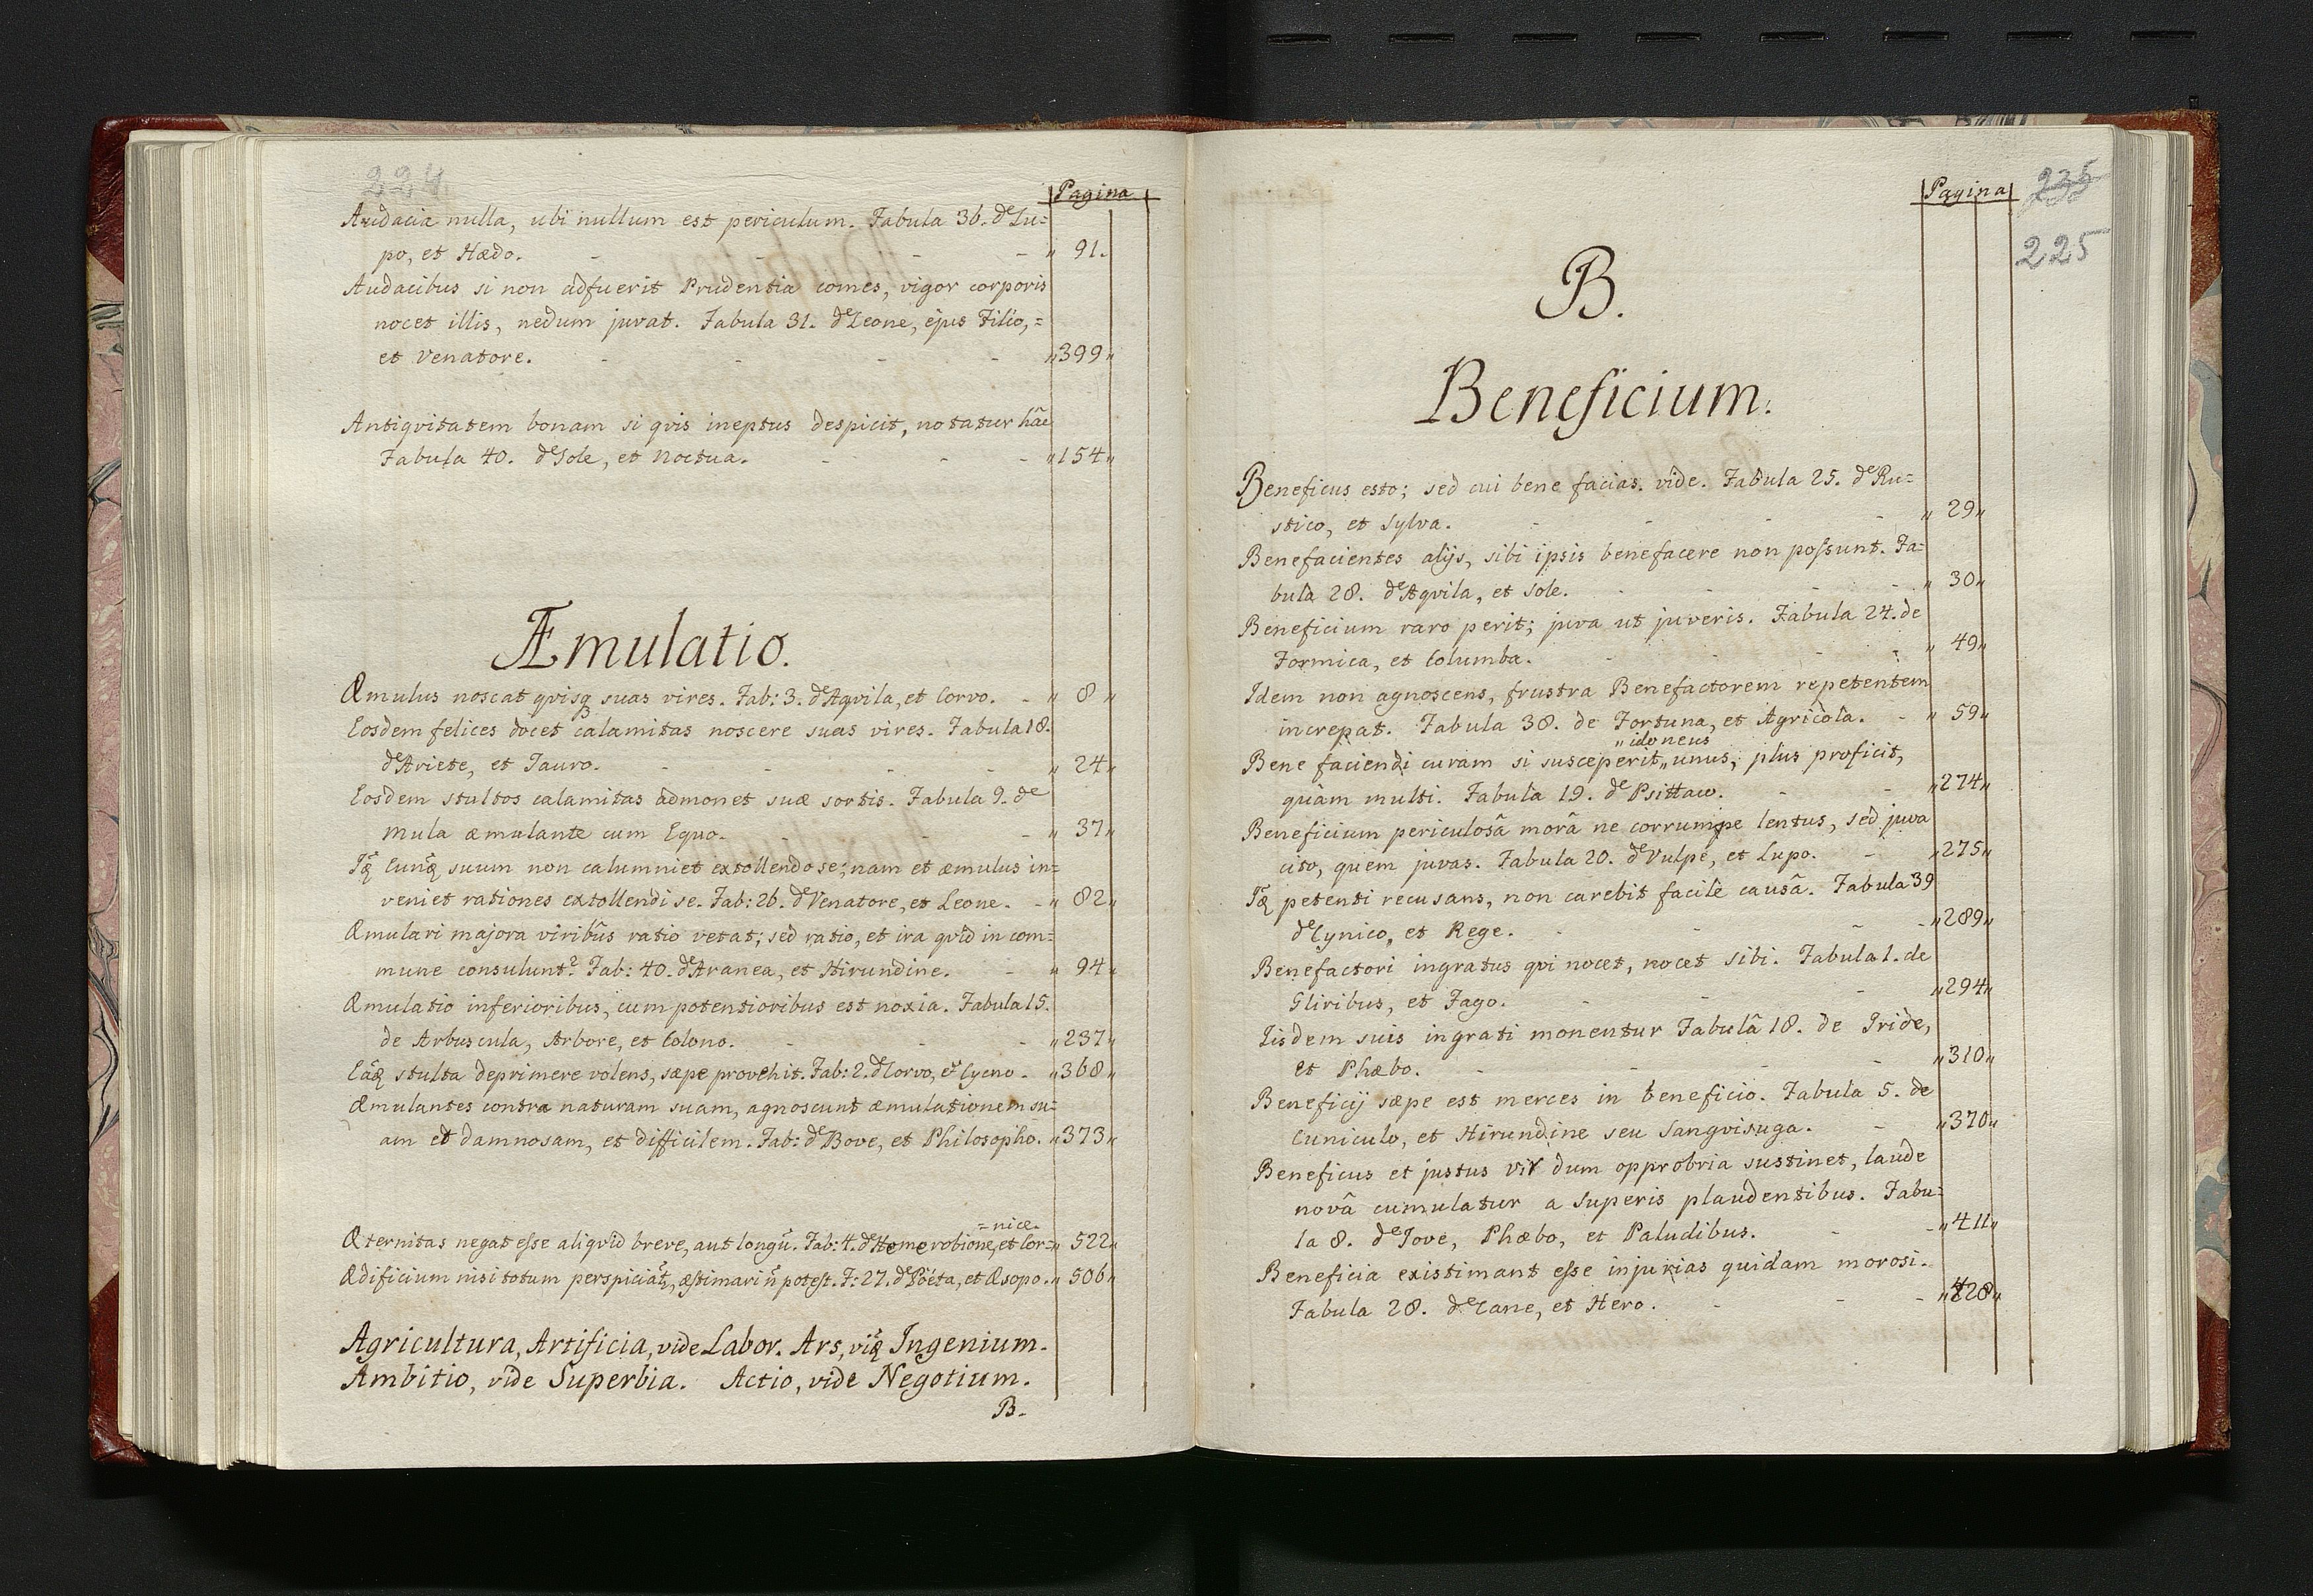 224
Pagina
Audacia nulla, ubi nullum est periculum. Fabula 36. de Lu=
po, et Hædo. - - - - „ 91.
Audacibus si non adfuerit Prudentia comes, vigor corporis
nocet illis, nedum juvat. Fabula 31. de Leone, ejus Filio,=
et Venatore. - - - - „399„
Antiqvitatem bonam si qvis ineptus despicit, notatur hâc
Fabula 40. de Sole, et Noctua. - - - „154„
Æmulatio.
Æmulus noscat qvisq suas vires. Fab: 3. de Aqvila, et Corvo. - „ 8 „
Eosdem felices docet calamitas noscere suas vires. Fabula 18.
de Ariete, et Tauro. - - - - „ 24„
Eosdem stultos calamitas admonet suæ sortis. Fabula 9. de
Mula æmulante cum Equo. - - - „ 37„
suum non calumniet extollendo se; nam et æmulus in=
veniet rationes extollendi se. Fab: 26. de Venatore, et Leone. - „ 82„
Æmulari majora viribûs ratio vetat; sed ratio, et ira qvid in com=
mune consulunt? Fab: 40. de Aranea, et Hirundine. - „ 94„
Æmulatio inferioribus, cum potentioribus est noxia. Fabula 15.
de Arbuscula, Arbore, et Colono. - - - „237„
stulta deprimere volens, sæpe provehit. Fab: 2. de Corvo, et Cycno. - „368„
Æmulantes contra naturam suam, agnoscunt æmulationem su=
am et damnosam, et difficilem. Fab: de Bove, et Philosopho. „373„
=nice.
Æternitas negat esse aliqvid breve, aut longū. Fab: 4. de Hemerobione, et Cor= „ 522„
Ædificium nisi totum perspiciat, æstimari ñ potest. F: 27. de Poéta, et Æsopo. „ 506„
Agricultura, Artificia, vide Labor. Ars, Ingenium.
Ambitio, vide Superbia. Actio, vide Negotium.
B.
Pagina
235
225
B.
Beneficium.
Beneficus esto; sed cui bene facias. vide. Fabula 25. de Ru=
stico, et Sylva. - - - - „ 29„
Benefacientes alijs, sibi ipsis benefacere non possunt. Fa=
bula 28. de Aqvila, et Sole. - - - „ 30„
Beneficium raro perit; juva ut juveris. Fabula 24. de
Formica, et Columba. - - - - „ 49„
Idem non agnoscens, frustra Benefactorem repetentem
increpat. Fabula 38. de Fortuna, et Agricola. - „ 59„
„idoneus
Bene faciendi curam si susceperit„ unus, plus proficit,
quàm multi. Fabula 19. de Psittaco. - - „274„
Beneficium periculosâ morâ ne corrumpe lentus, sed juva
cito, quem juvas. Fabula 20. de Vulpe, et Lupo. - „275„
petenti recusans, non carebit facilè causâ. Fabula 39
de Cynico, et Rege. - - - - „289„
Benefactori ingratus qvi nocet, nocet sibi. Fabula 1. de
Gliribus, et Fago. - - - „294„
Iisdem suis ingrati monentur Fabulâ 18. de Iride,
et Phæbo. - - - - „310„
Beneficij sæpe est merces in beneficio. Fabula 5. de
Cuniculo, et Hirundine seu Sangvisuga. - „370„
Beneficus et justus vir dum opprobria sustinet, laude
novâ cumulatur a Superis plaudentibus. Fabu=
la 8. de Jove, Phæbo, et Paludibus. - - „411„
Beneficia existimant esse injurias quidam morosi.
Fabula 28. de Cane, et Hero. - - - „428„